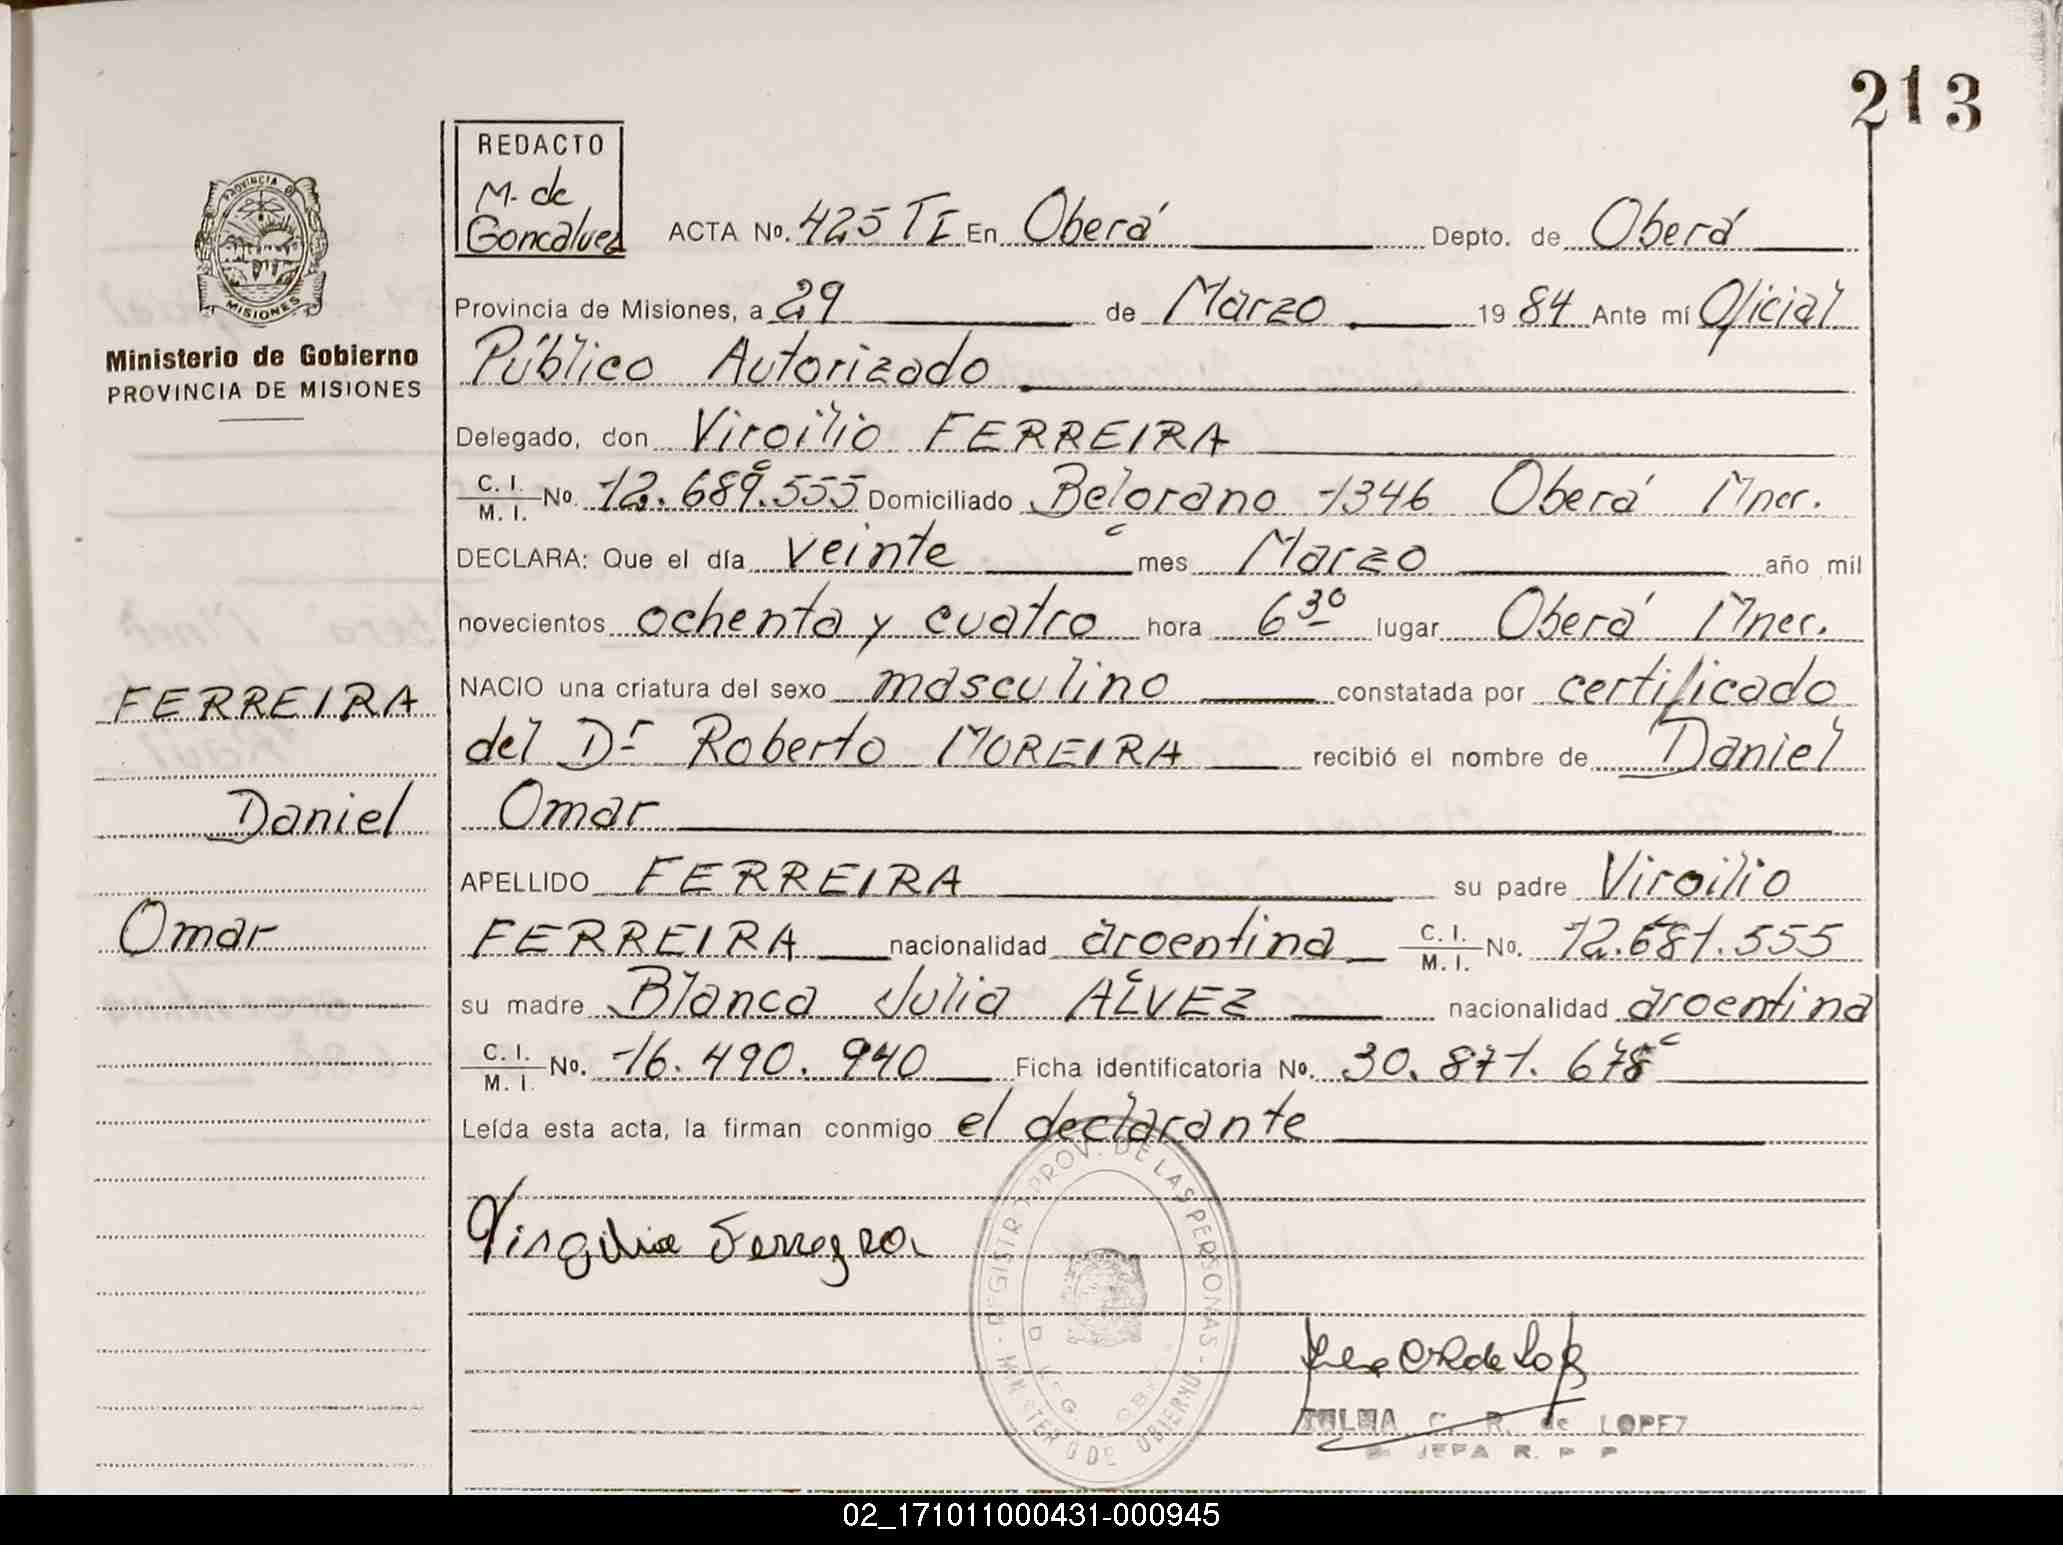 213
REDACTO
M. de
Goncalvez
ACTA No. 425 TI En Oberá Depto. de Oberá
PROVINCIA DE
MISIONES
Provincia de Misiones, a 29 de Marzo 1984 Ante mí Oficial
Ministerio de Gobierno
PROVINCIA DE MISIONES
Público Autorizado
Delegado, don Virgilio FERREIRA
C. I. / M. I. No. 12.681.555 Domiciliado Belgrano 1346 Oberá Mnes.
DECLARA: Que el día veinte mes Marzo año mil
novecientos ochenta y cuatro hora 6 30 lugar Oberá Mnes.
FERREIRA
NACIO una criatura del sexo masculino constatada por certificado
del Dr Roberto MOREIRA recibió el nombre de Daniel
Daniel
Omar
APELLIDO FERREIRA su padre Virgilio
Omar
FERREIRA nacionalidad argentina C. I. / M. I. No. 12.681.555
su madre Blanca Julia ALVEZ nacionalidad argentina
C. I. / M. I. No. 16.490.940 Ficha identificatoria No. 30.871.678
Leída esta acta, la firman conmigo el declarante
REGISTRO PROV. DE LAS PERSONAS - MINISTERIO DE GOBIERNO
Virgilio Ferreyra
C. R. de LOPEZ
JEFA R. P. P
02_171011000431-000945